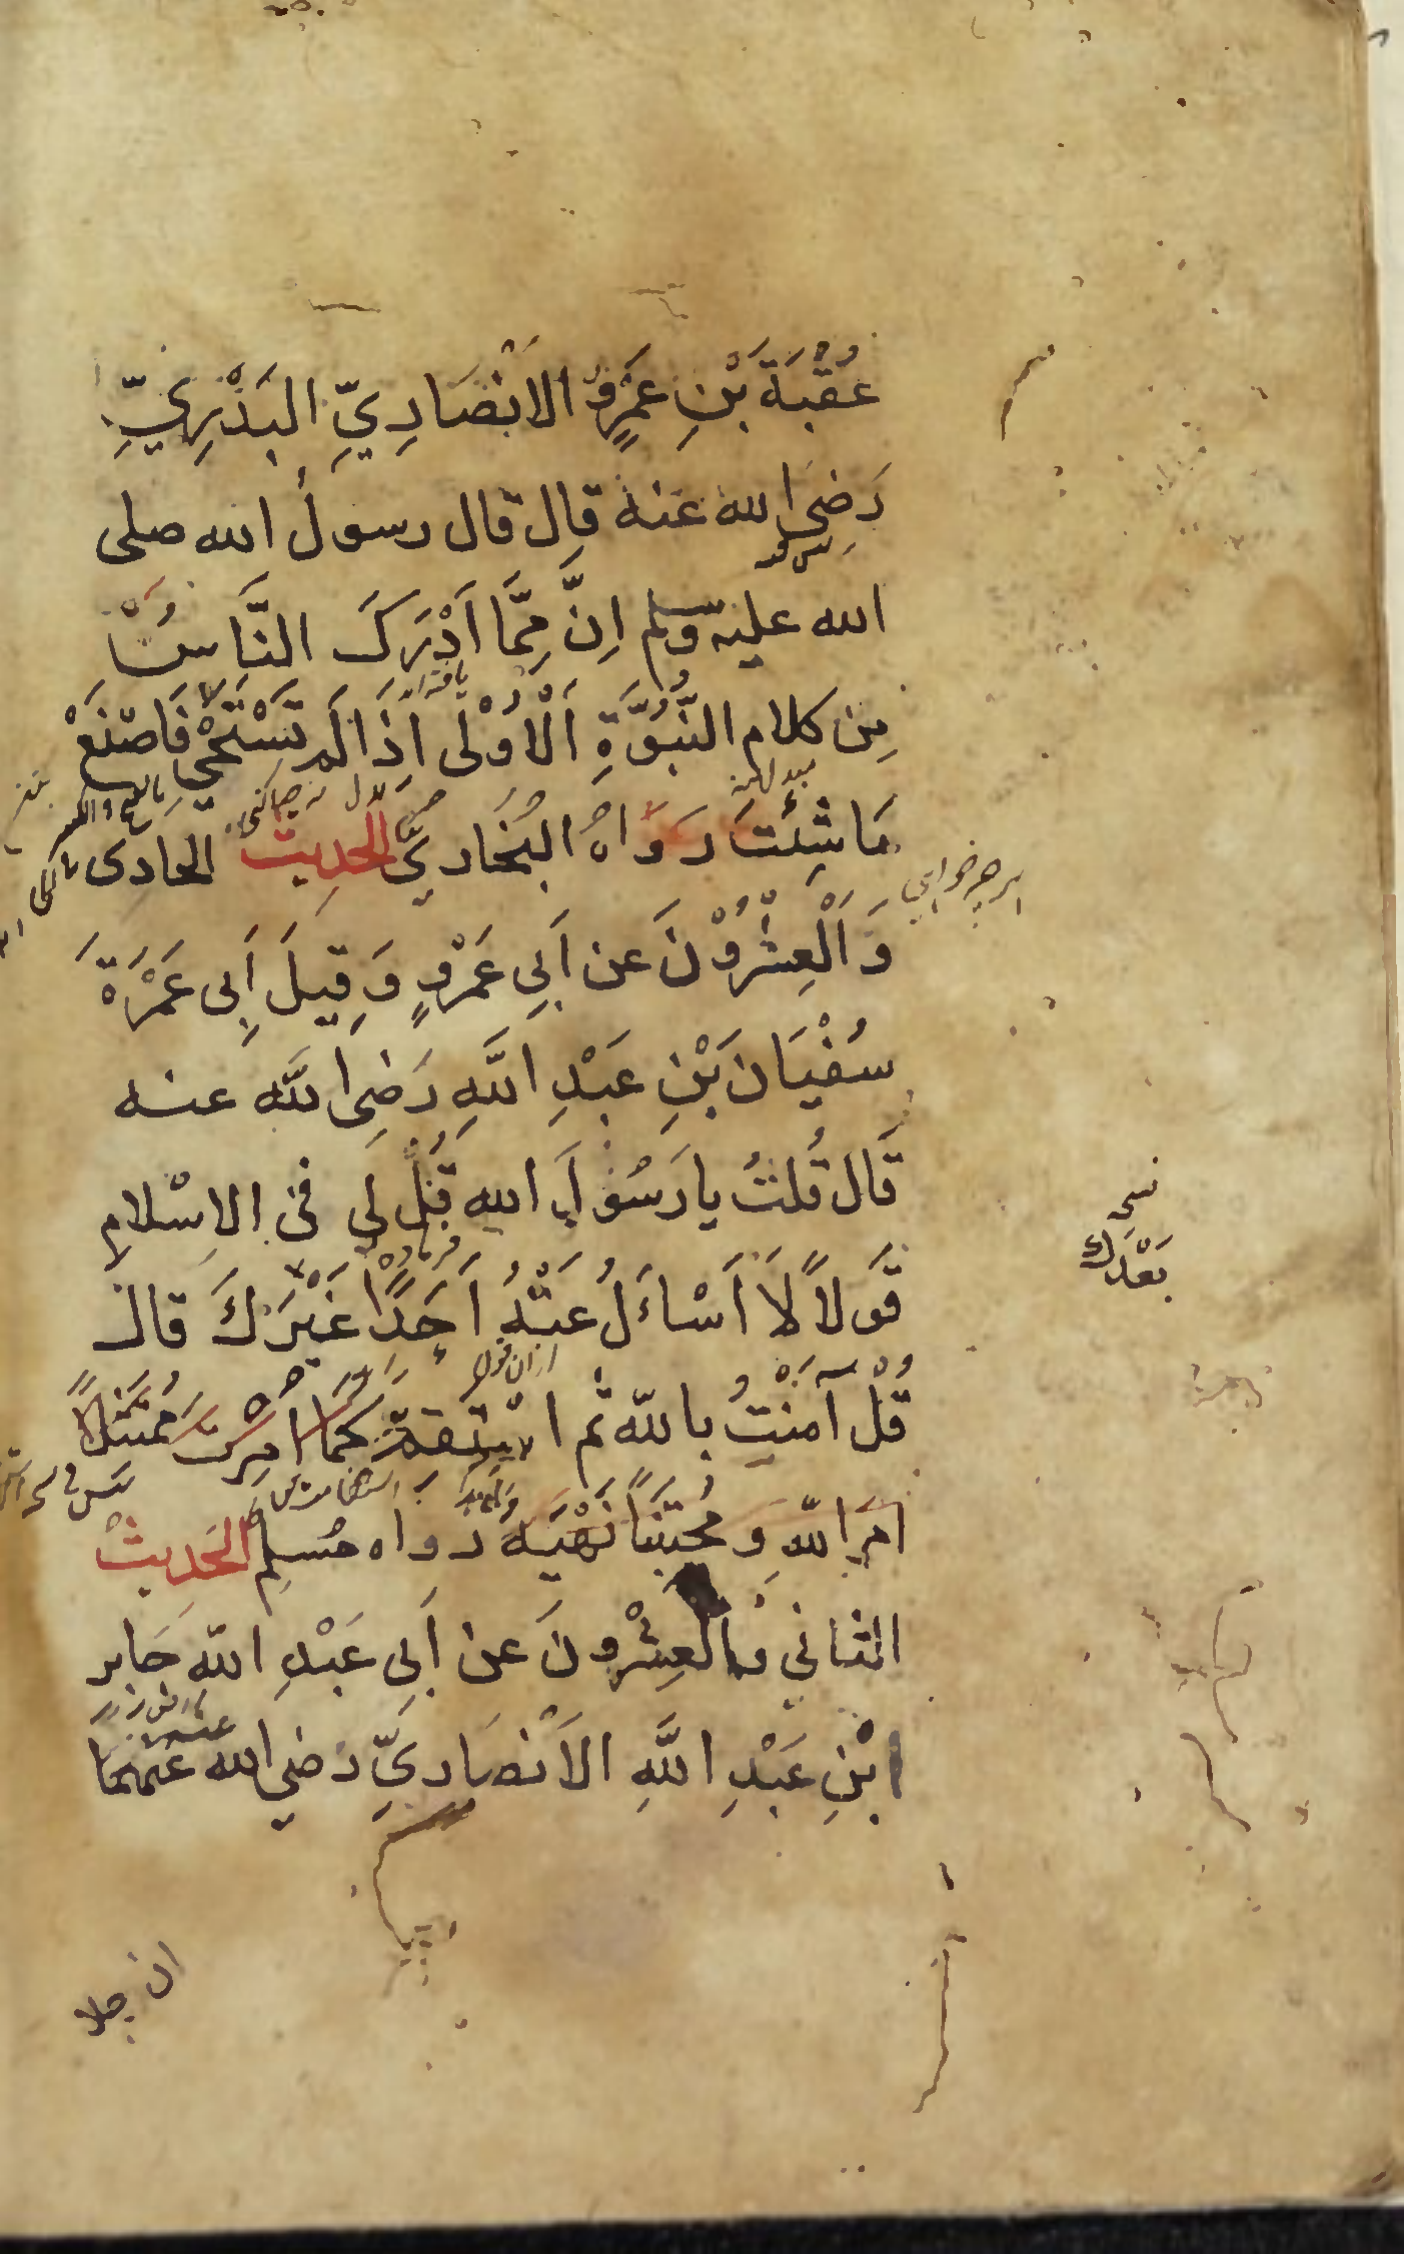 عُقْبَةَ بْنِ عَمْرٍو الْاَنْصَارِيِّ البَدْرِيِّ
رَضِىَ الله عَنهُ قال قال رسولُ الله صلى
الله عليه وسلم اِنَّ مِمَّا اَدْرَكَ النَّاسُ
مِن كلام النُّبُوَّةِ اَلْاُوْلَى اِذَا لَم تَسْتَحْيِ فَاصْنَعْ
مَا شِئْتَ رَوَاهُ البُخَاريُّ الحَدِيث الحادِى
وَالْعِشْرُوْنَ عن اَبِي عَمْرٍو وَقِيلَ اَبِى عَمْرَةَ
سُفْيَان بْنِ عَبْدِ اللَّهِ رَضِىَ اللَّه عنه
قَالَ قُلتُ يا رَسُوْلَ الله قُلْ لِي فى الاِسْلامِ
قَولاً لَا اَسْاَلُ عَنْهُ اَحَدًا غَيْرَكَ قال
نسخ
بَعْدَك
قُلْ آمَنْتُ باللّه ثم اسْتَقِمْ كَمَا اُمِرْتَ مُمْتَثِلاً
اَمْرَ اللّهِ وَمُجْتَنِبًا نَهْيَهُ رواه مُسلِم الحَدِيثْ
الثاني والعِشْرُونَ عن اَبِى عَبْدِ اللّه جَابر
ابْنِ عَبْدِ اللَّهِ الاَنْصَارِيِّ رَضي الله عَنْهُمَا
ان رجلا